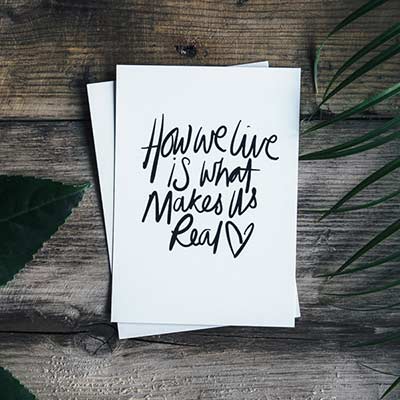 How we live
is what
Makes us
Real♡